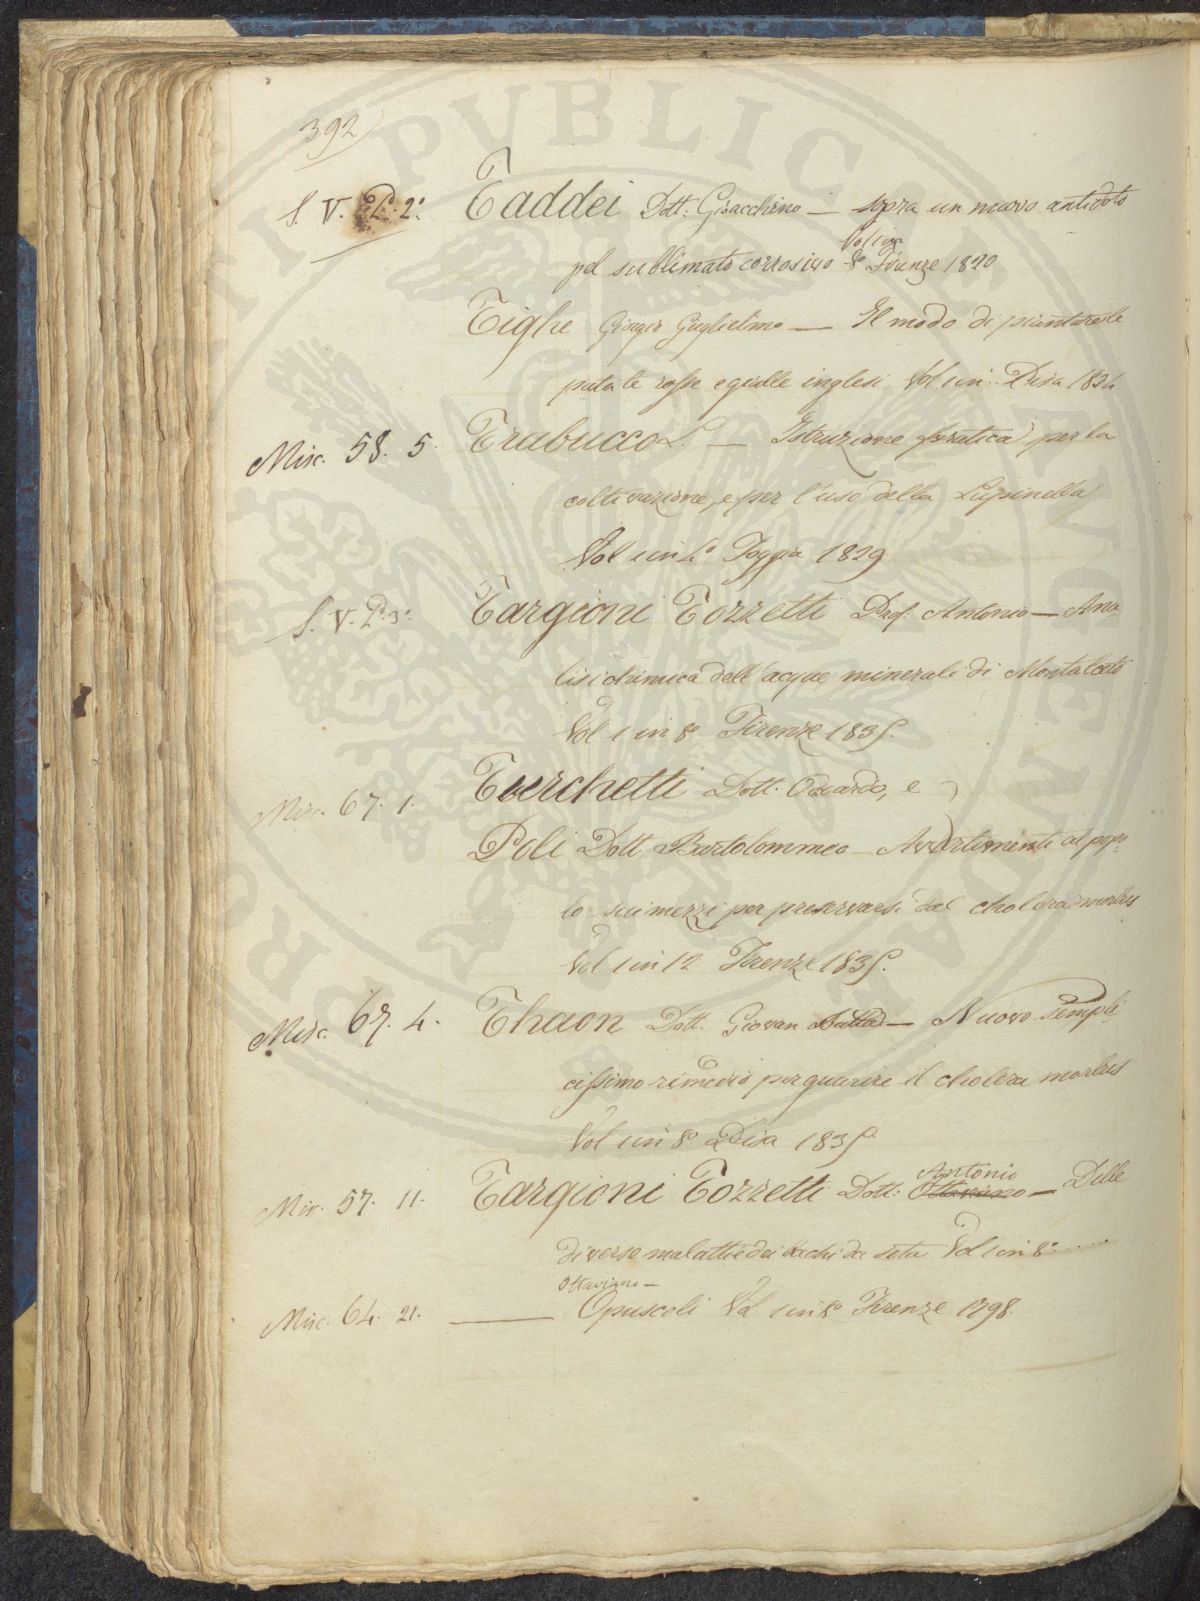 392
S. V. P. 2º. Taddei Dott: Gioacchino — sopra un nuovo antidoto
Vol 1 in
pel sublimato corrosivo 8º Firenze 1820
Tighe Giorgio Guglielmo — Il modo di piantare le
patate rosse e gialle inglesi Vol 1 in Pisa 1824
Misc. 58. 5. Trabucco — Istruzione pratica per la
coltivazione, e per l'uso della Lupinella
Vol 1 in Foggia 1829
S. V. P. 3º. Targioni Tozzetti Prof. Antonio — Ana
lisi chimica dell'acque minerali di Montalceto
Vol 1 in 8º Firenze 1835.
Misc. 67. 1. Turchetti Dott. Odoardo, e
Poli Dott Bartolommeo — Avvertimenti al popo
lo sui mezzi per preservarsi dal cholera morbus
Vol 1 in 12 Firenze 1835.
Misc. 67. 4. Thaon Dott. Giovan Batta — Nuovo Sempli
cissimo rimedio per guarire il cholera morbus
Vol 1 in 8º Pisa 1835
Antonio
Misc. 57. 11. Targioni Tozzetti Dott: Ottaviano — Delle
diverse malattie dei bachi da seta Vol 1 in 8º.....
Ottaviano —
Misc. 64. 21. ——— Opuscoli Vol 1 in 8º Firenze 1798.
PVBLICAE